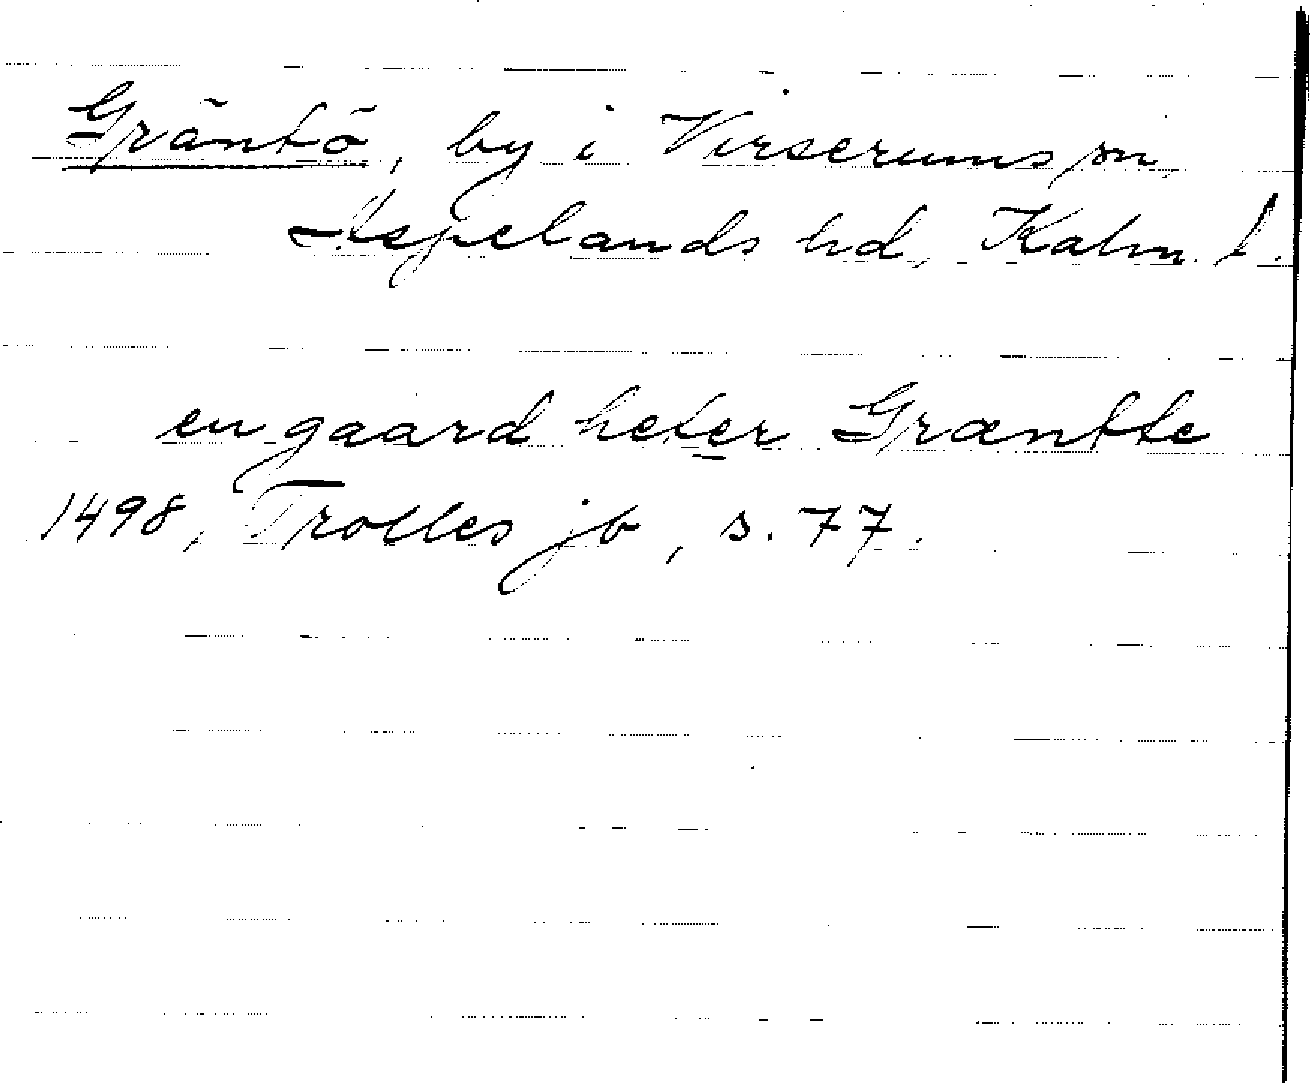 Gräntö, by i Virserums sn,
Aspelands hd, Kalm. l.
en gaard heter Græntte
1498, Trolles jb, s. 77.